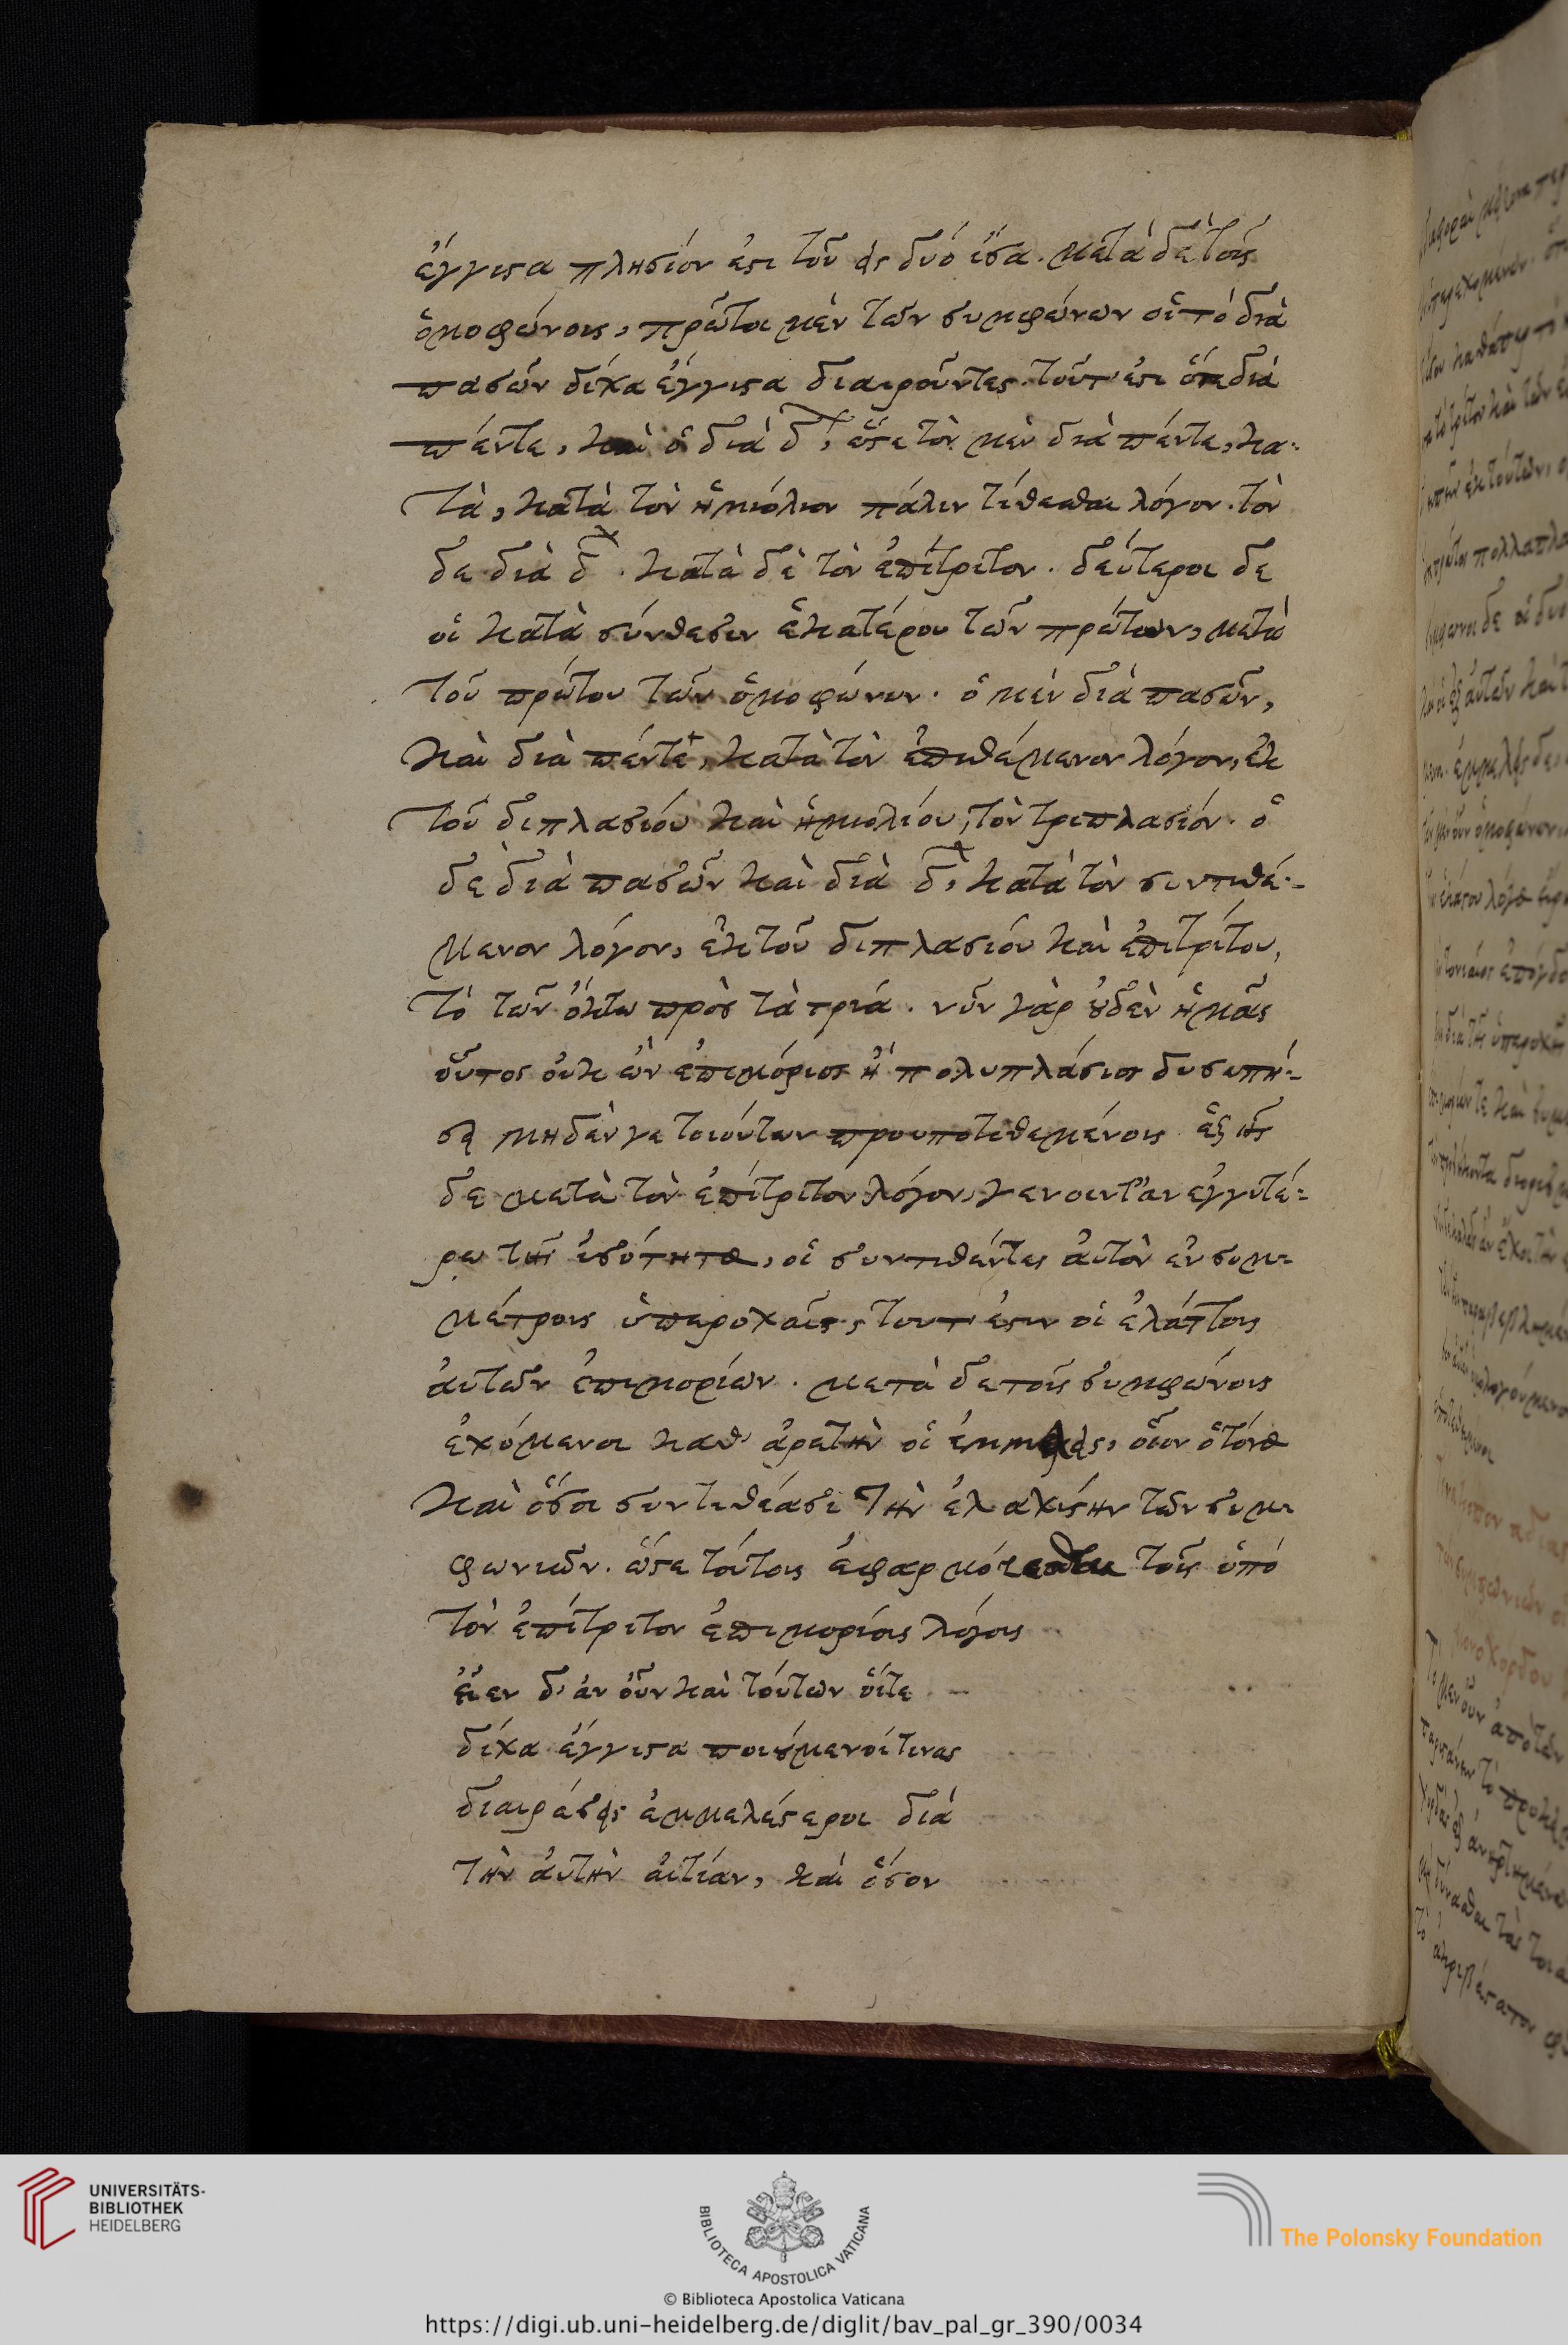 ἔγγιστα πλησίον ἐστι τοῦ εἰς δυό ἴσα. μετὰ δὲ τοῖς
ὁμοφώνοις, πρῶτοι μὲν τῶν συμφώνων οἱ τὸ διὰ
πασῶν δίχα ἔγγιστα διαιροῦντες. τοῦτ' ἐστι ὅτε διὰ
πέντε, καὶ ὁ διὰ δ', ὥστε τὸν μὲν διὰ πέντε, κα-
τὰ, κατὰ τὸν ἡμιόλιον πάλιν τίθεσθαι λόγον. τὸν
δε διὰ δ'. κατὰ δὲ τὸν ἐπίτριτον. δεύτεροι δε
οἱ κατὰ σύνθεσιν ἑκατέρου τῶν πρώτων, μετὰ
τοῦ πρώτου τῶν ὁμοφώνων. ὁ μὲν διὰ πασῶν,
καὶ διὰ πέντε, κατὰ τὸν ἐπιθέμενον λόγον, ἐκ
τοῦ διπλασιόυ καὶ ἡμιολιόυ, τὸν τριπλασιόν. ὁ
δὲ διὰ πασῶν καὶ διὰ δ', κατὰ τὸν συντιθέ-
μενον λόγον, ἐκ τοῦ διπλασιόυ καὶ ἐπιτρίτου,
τὸ τῶν ὀκτω πρὸς τὰ τριά. νῦν γὰρ οὐδὲν ἡμᾶς
οὗτος οὐκ ὢν ἐπιμόριος ἢ πολυπλάσιος δυσωπή-
σει μηδέν γε τοιούτων προυποτεθεμένοις ἑξῆς
δε μετὰ τὸν ἐπίτριτον λόγον, γενοιντ' ἂν ἐγγυτέ-
ρω τῆς ἰσότητος, οἱ συντιθέντες αὐτὸν ἐν συμ-
μέτροις ὑπεροχαῖς, τουτ' έστιν οἱ ἐλάττοις
ἀυτῶν ἐπιμορίων. μετὰ δε τοῖς συμφώνοις
ἐχόμενοι κατ' ἀρετὴν οἱ ἐμμελεῖς, οἷον ὁ τόνος
καὶ ὅσοι συντιθέασι τὴν ἐλαχίστην τῶν συμ-
φωνιῶν. ὥστε τούτοις ἐφαρμόζεσθαι τοῖς ὑπό
τὸν ἐπίτριτον ἐπιμορίοις λόγοις
εἶεν δ' ἀν οὖν καὶ τούτων οἵτε
δίχα ἔγγιστα ποιούμενοί τινας
διαιρέσεις ἐμμελέστεροι διά
τὴν ἀυτὴν ἀιτίαν, καὶ ὅσον
UNIVERSITÄTS-
BIBLIOTHEK
HEIDELBERG
BIBLIOTECA APOSTOLICA VATICANA
The Polonsky Foundation
© Biblioteca Apostolica Vaticana
https://digi.ub.uni-heidelberg.de/diglit/bav_pal_gr_390/0034